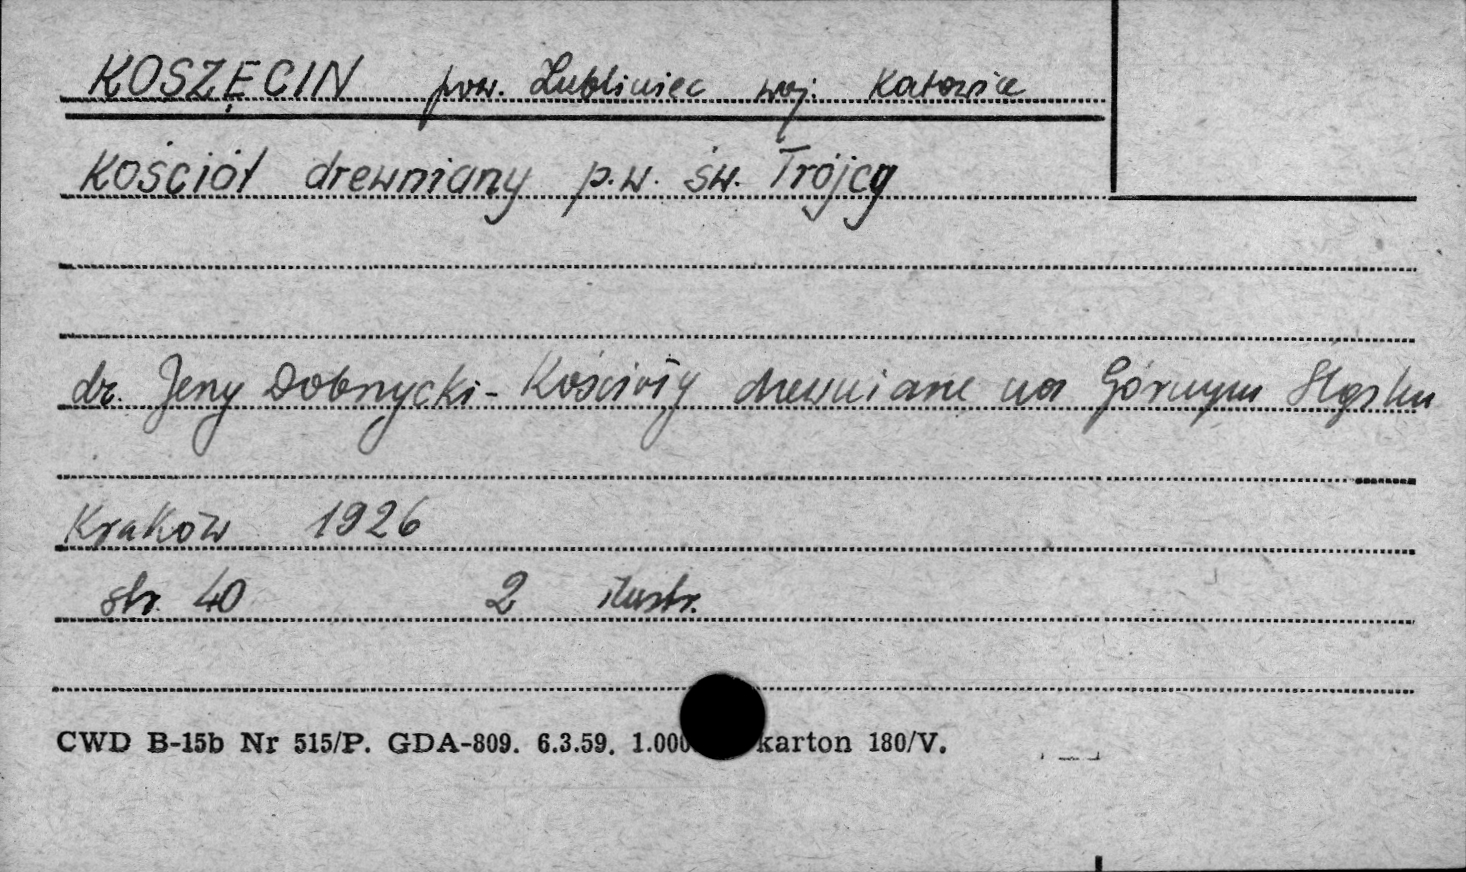 KOSZĘCIN pow. Lubliniec woj. Katowice
Kościół drewniany p.w. św. Trójcy
dr. Jerzy Dobrzycki - Kościoły drewniane na Górnym Śląsku
Kraków 1926
str. 40 2 ilustr.
CWD B-15b Nr 515/P. GDA-809. 6.3.59. 1.000 karton 180/V.